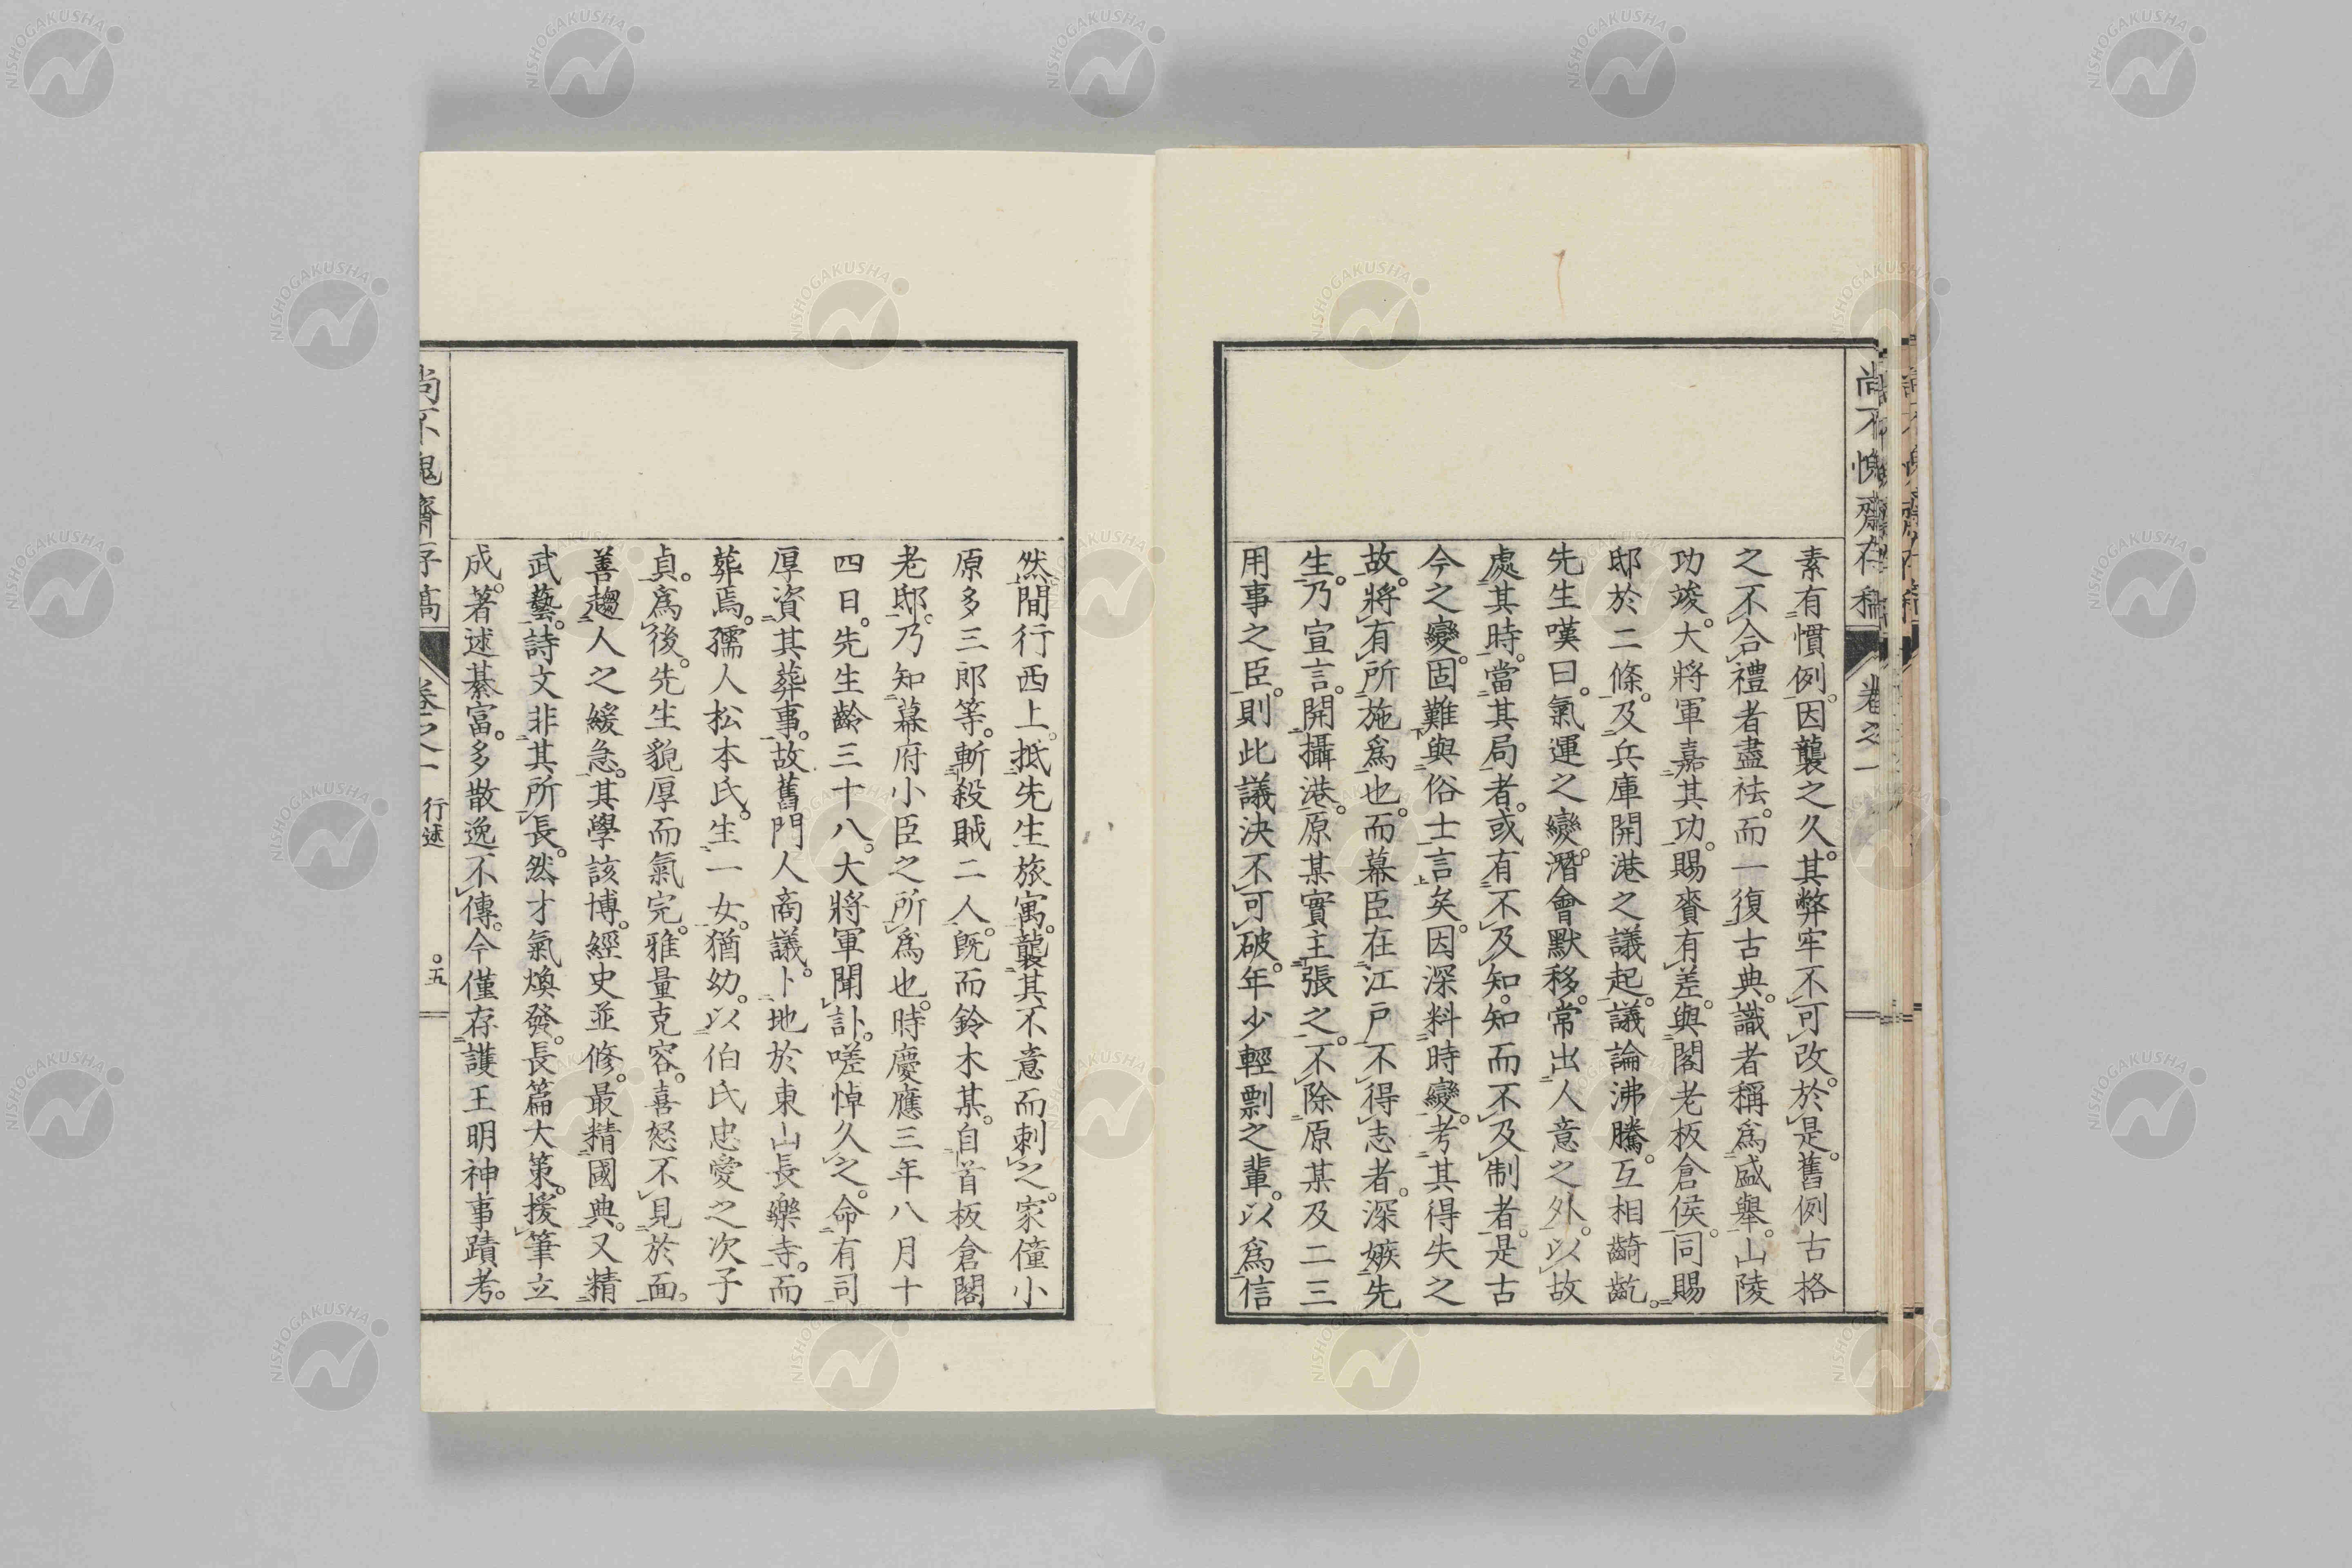 尚不愧齋存稿 卷之一
素有慣例。因襲之久。其弊牢不可改。於是。舊例古格
之不合禮者盡祛。而一復古典。識者稱爲盛擧。山陵
功竣。大將軍嘉其功。賜賚有差。與閣老板倉侯。同賜
邸於二條。及兵庫開港之議起。議論沸騰。互相齮齕。
先生嘆曰。氣運之變。潛會默移。常出人意之外。以故
處其時。當其局者。或有不及知。知而不及制者。是古
今之變。固難與俗士言矣。因深料時變。考其得失之
故。將有所施爲也。而幕臣在江戸不得志者。深嫉先
生。乃宣言。開攝港。原某實主張之。不除原某及二三
用事之臣。則此議決不可破。年少輕剽之輩。以爲信
然。間行西上。抵先生旅寓。襲其不意而刺之。家僮小
原多三郎等。斬殺賊二人。既而鈴木某。自首板倉閣
老邸。乃知幕府小臣之所爲也。時慶應三年八月十
四日。先生齡三十八。大將軍聞訃。嗟悼久之。命有司
厚資其葬事。故舊門人商議。卜地於東山長樂寺。而
葬焉。孺人松本氏。生一女。猶幼。以伯氏忠愛之次子
貞。爲後。先生貌厚而氣完。雅量克容。喜怒不見於面。
善趨人之緩急。其學該博。經史並修。最精國典。又精
武藝。詩文非其所長。然才氣煥發。長篇大策。援筆立
成。著述綦富。多散逸不傳。今僅存護王明神事蹟考。
尚不愧齋存稿 卷之一 行述 五
NISHOGAKUSHA